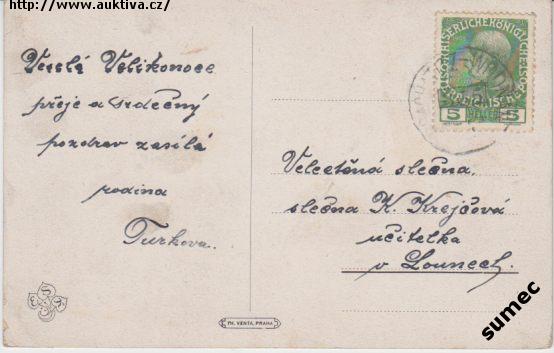 http://www.auktiva.cz/
Veselé Velikonoce
přeje a srdečný
pozdrav zasílá
rodina
Turkova.
5 5
HELLER
Velectěná slečna,
slečna K. Krejčová
učitelka
v Lounech.
FR. VENTA, PRAHA
sumec